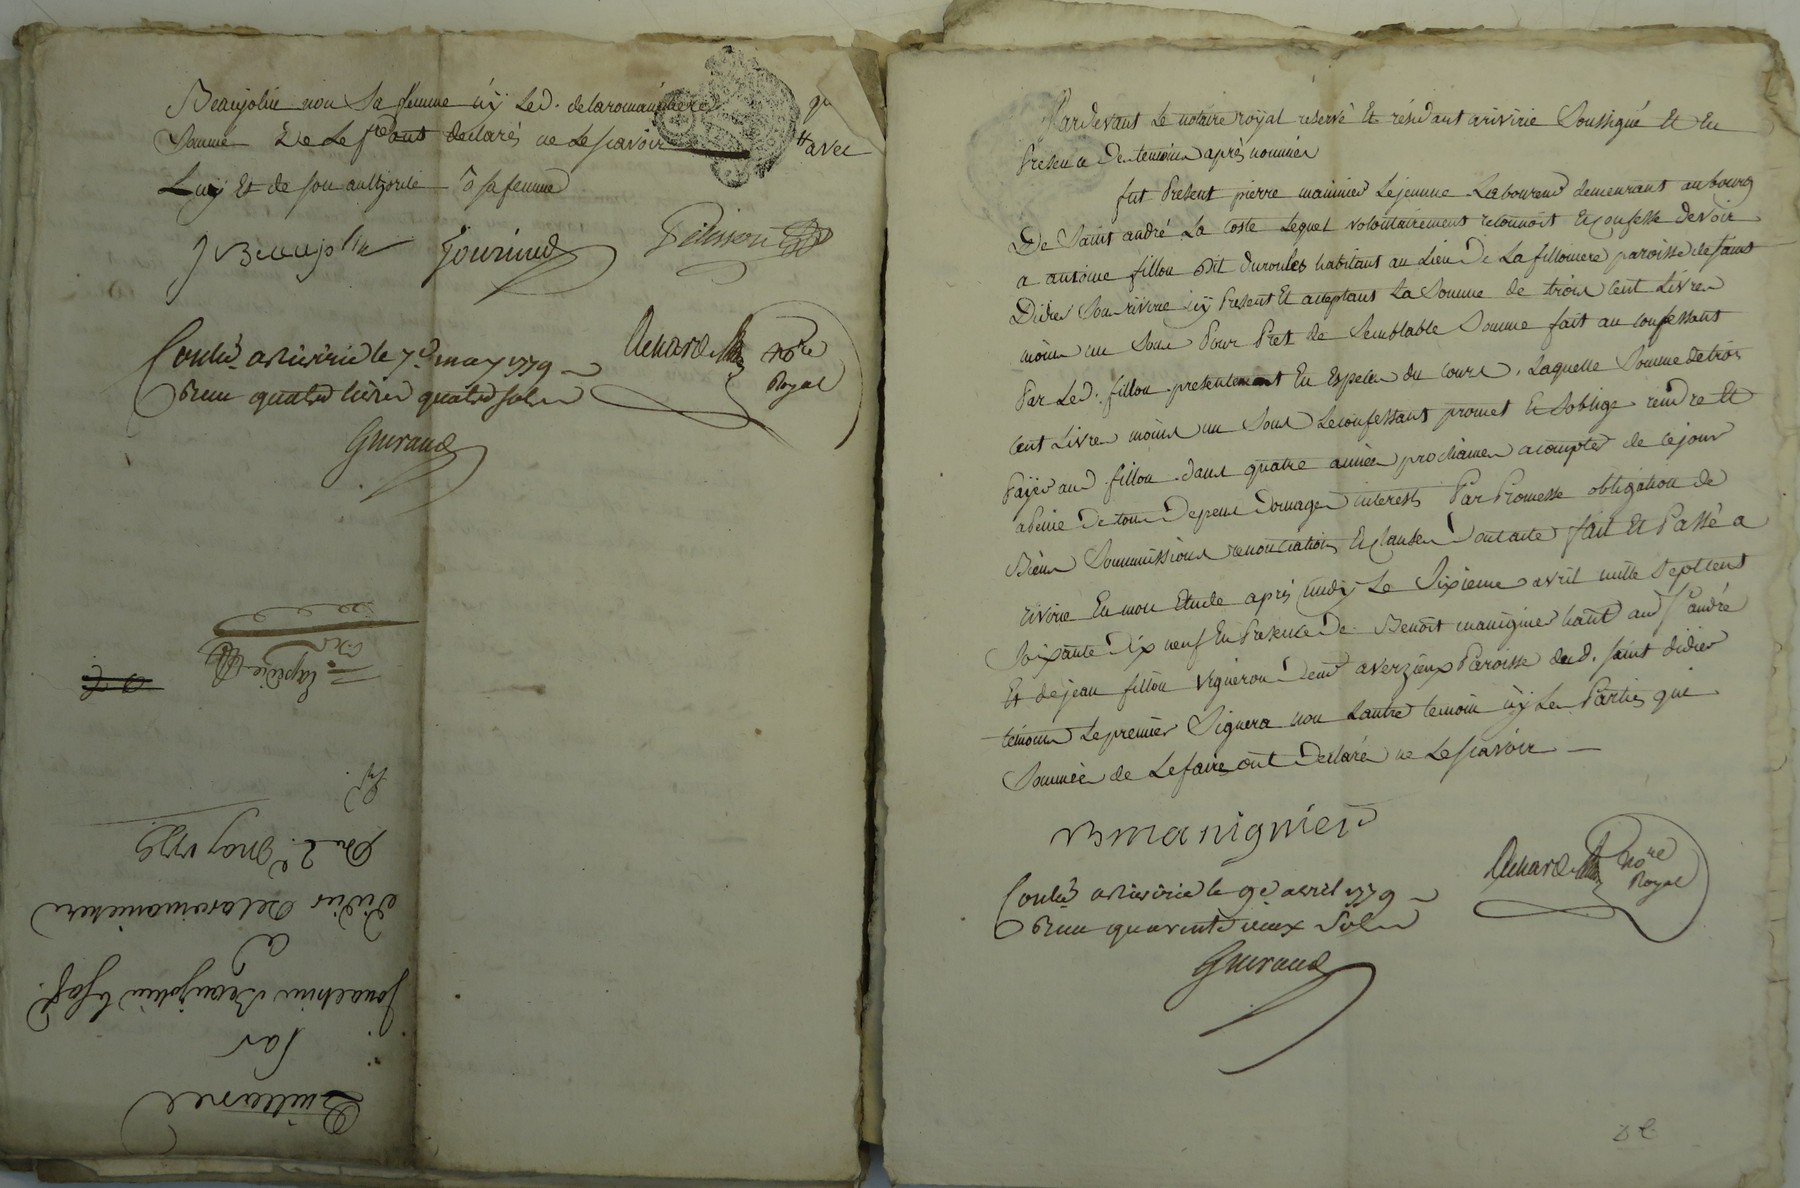 Beaujolin non sa femme icy led. delaromanichere qui
Sommé De Le fre ont declarés ne Le scavoir # avec
Luy Et de son authorité sa femme
J Beaujolin Gourinel Pelisson
Conllé a Riverie le 7e may 1779
Reçu quatre livres quatre sols
Guiraud
Achard nore
Royal
Quittance
Par
Joachim Beaujolin & sa fe.
a
Didier Delaromanichere
Du 2e. may 1779
Pardevant Le notaire royal reservé Et résidant a riverie Soussigné Et En
Presence Des temoins après nommés
fut Present pierre maninier Lejeune Laboureur demeurant au bourg
De Saint andré La Coste Lequel volontairement reconnoit Et Confesse devoir
a antoine fillou Dit duroules habitant au Lieu De La filloniere paroisse de saint
Didier Sous riverie icy Present Et acceptant La Somme de trois Cent Livres
moins un Sous Pour Pret de Semblable Somme fait au Confessant
Par Led. fillou presentement En Especes du Cours. Laquelle Somme de trois
Cent Livres moins un Sous Le confessant promet Et S'oblige rendre Et
Payer aud. fillou dans quatre années prochaines acompter de ce jour
a Peine De tous Depens Domages interests Par Promesse obligation de
Biens Soummissions renonciations Et Clauses Dont acte fait Et Passé a
riverie En mon Etude après midy Le Sixieme avril mille Septcent
Soixante Dix neuf En Presence De Benoît manignier hant aud St andré
Et de jean fillou Vigneron Demt a verzieux Paroisse dud. saint didier
témoins Le premier Signera non L'autre temoin icy Les Parties qui
Sommées de Le faire ont Declaré ne Le scavoir
B manignier
Conllé a Riverie le 9e avril 1779
Reçu quarente deux Sols
Guiraud
Achard nore
Royal